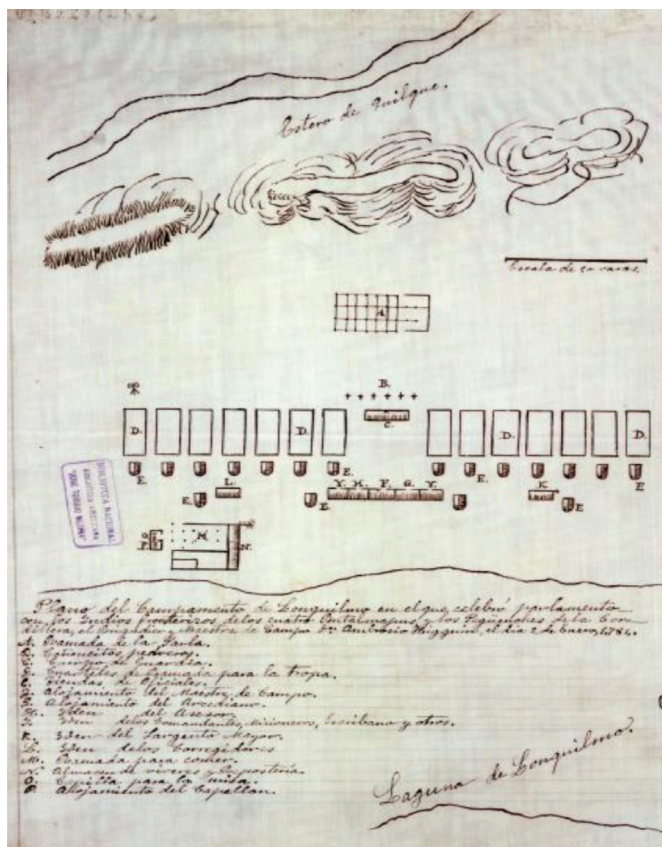 Estero de Quilque.
Escala de 50 varas.
A.
B.
C.
D. D. D. D.
E. E. E. E
Y. H. F. G. Y.
L. K
E. E. E
M. N.
O
P.
BIBLIOTECA NACIONAL
BIBLIOTECA AMERICANA
"JOSE TORIBIO MEDINA"
Plano del Campamento de Lonquilmo en el que celebró parlamento
con los Indios fronterizos de los cuatro Butalmapus y los Pegüenches de la Cor-
dillera, el Brigadier y Maestre de Campo Dn. Ambrosio Higgins, el dia 2 de Enero, 1784.
A. Ramada de la Parla.
B. Cañoncitos pedreros.
C. Cuerpo de Guardia.
D. Cuarteles de Ramada para la tropa.
E. Tiendas de Oficiales.
F. Alojamiento del Maestre de Campo.
G. Alojamiento del Arcediano.
H. Yden del Asesor.
Y. Yden de los Comandantes, Misioneros, Escribano y otros.
K. Yden del Sargento Mayor.
L. Yden de los Corregidores
M. Ramada para comer.
N. Almacen de viveres y Reposteria.
O. Capilla para la misa.
P. Alojamiento del Capellan.
Laguna de Lonquilmo.